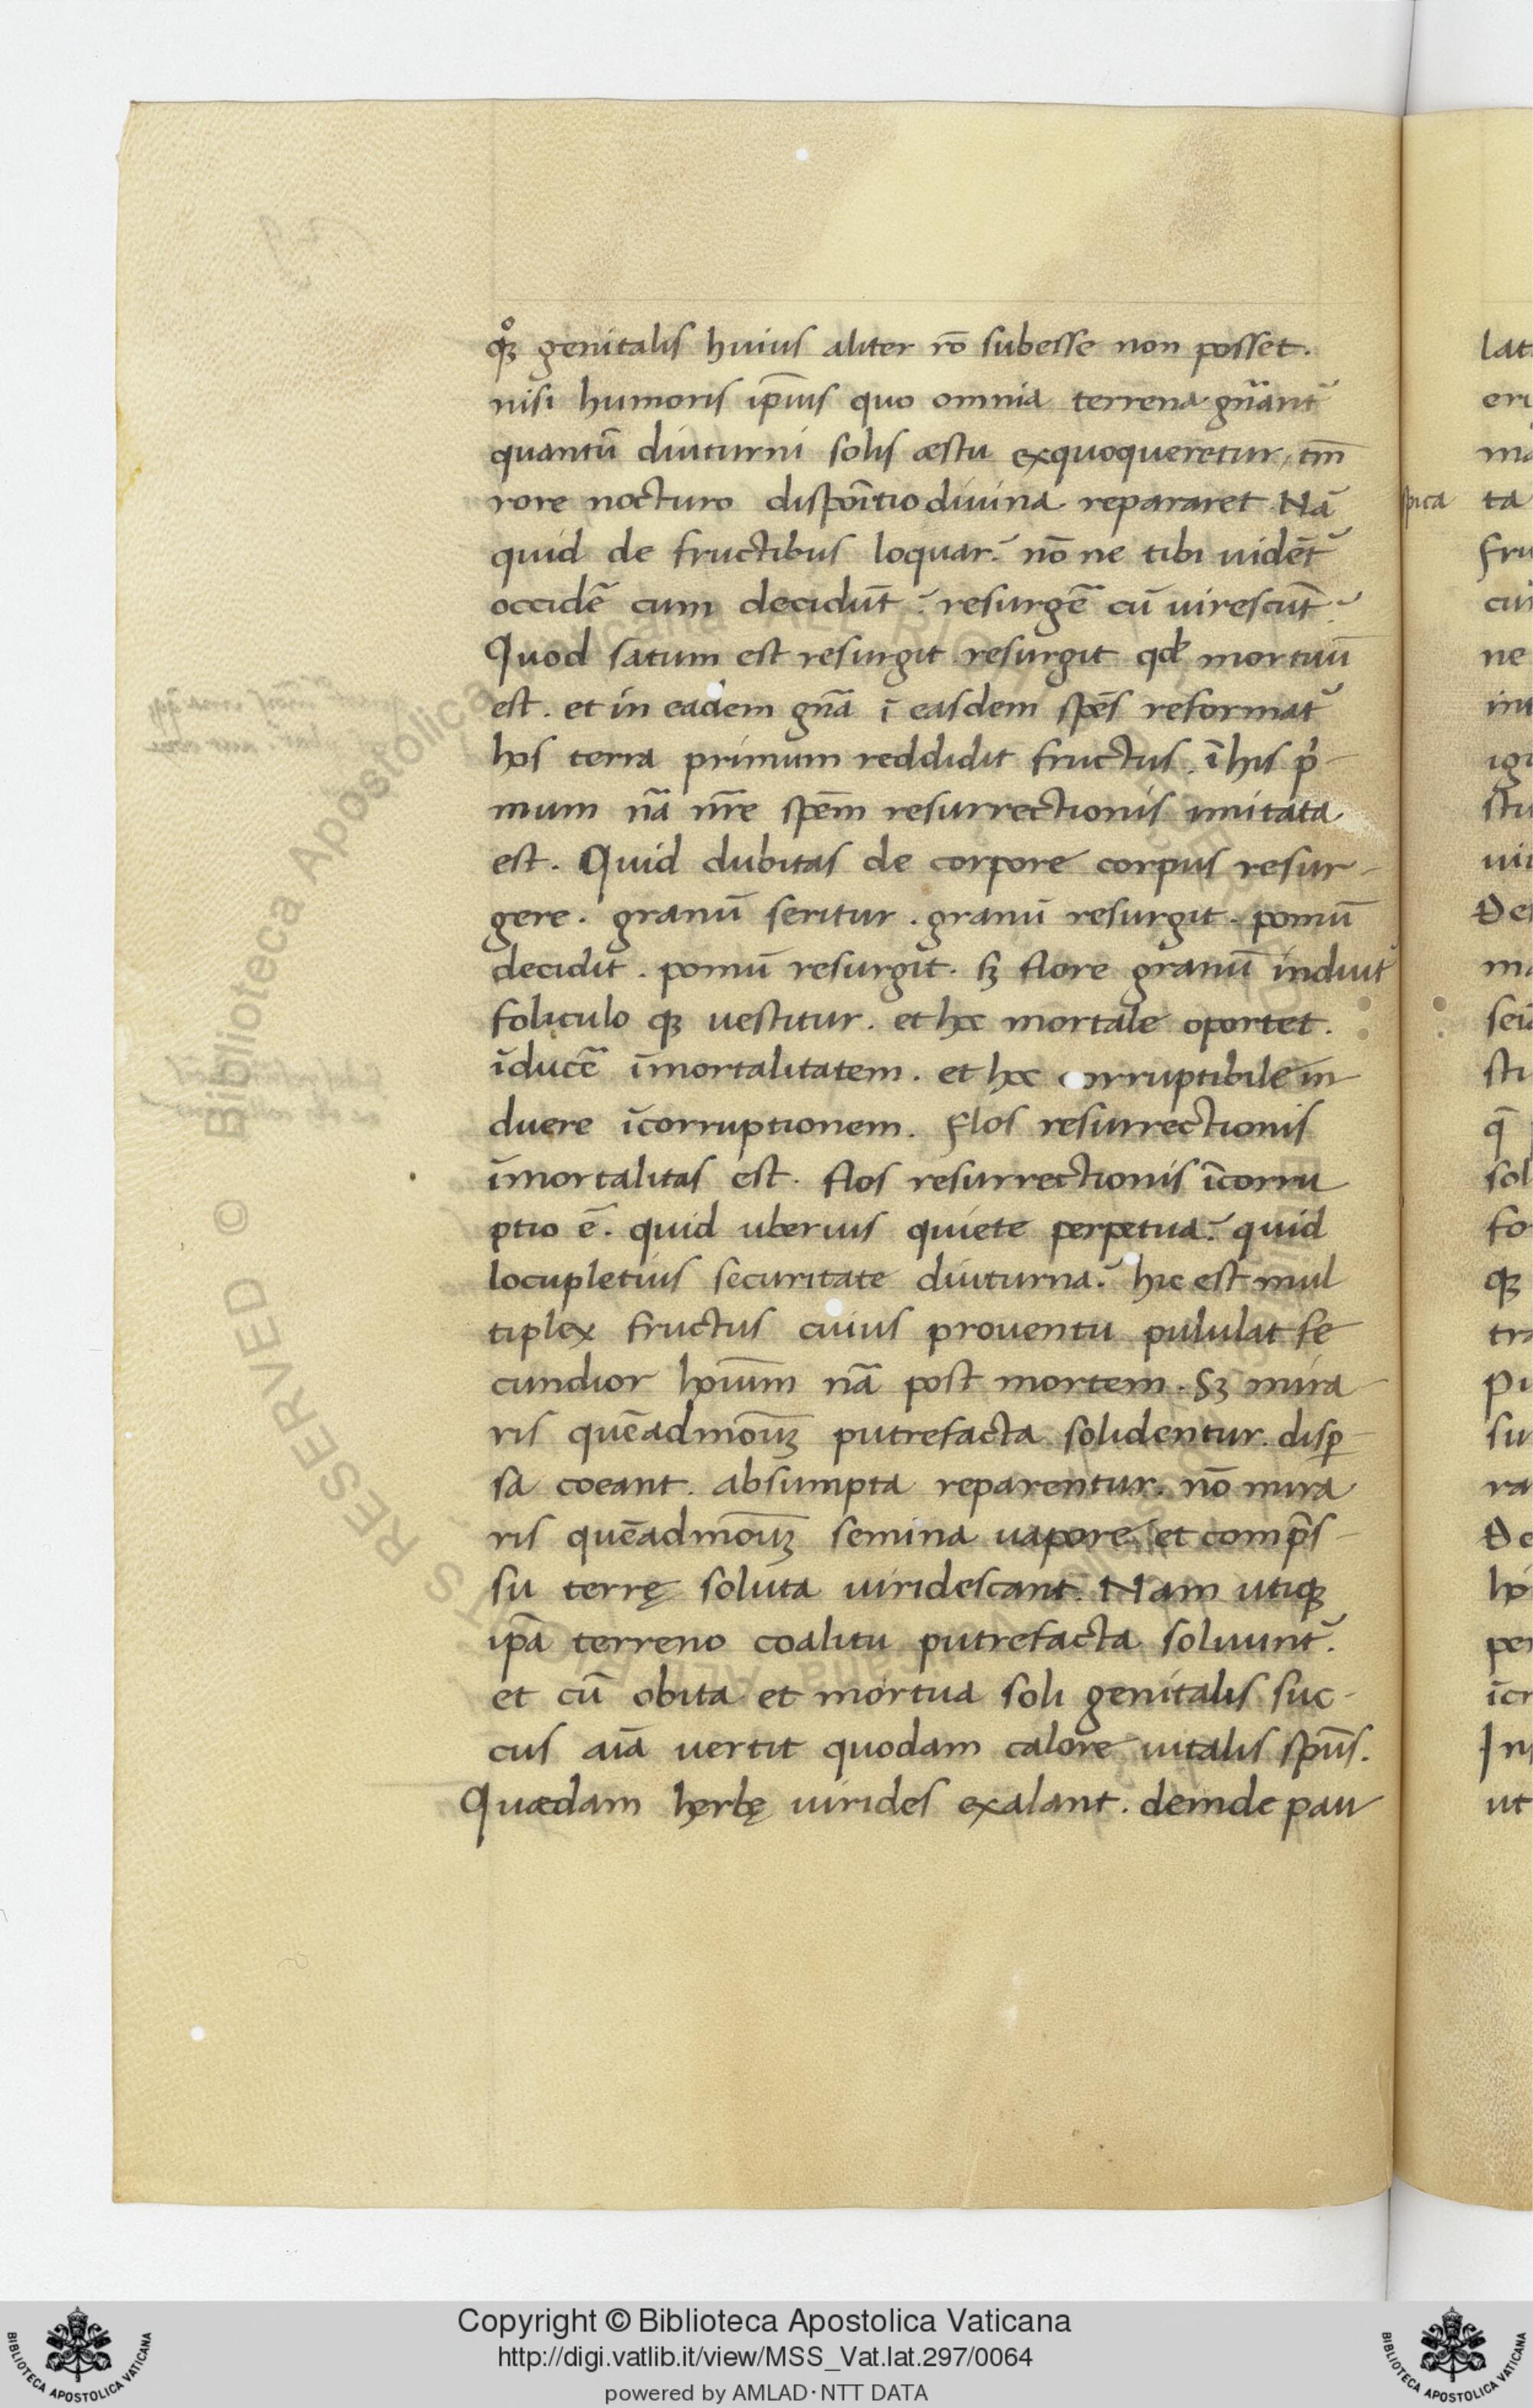 qͦꝫ genitalis huius aliter rō subesse non posset.
nisi humoris ip̄ius quo omnia terrena gn̄ant᷑
quantū diuturni solis æstu exquoqueretur, tm̄
rore nocturo dispoītio diuina repararet. Nā
quid de fructibus loquar? nōne tibi uidēt᷑
occidē cum decidūt? resurgē cū uirescūt?
Quod satum est resurgit resurgit qd̄ mortuū
est. et in eadem gn̄a ī easdem spēs reformat᷑
hos terra primum reddidit fructus. ī his p̄
mum nā nr̄e spēm resurrectionis imitata
est. Quid dubitas de corpore corpus resur-
gere. granū seritur. granū resurgit. pomū
decidit. pomū resurgit. sꝫ flore granū induit᷑
foliculo qꝫ uestitur. et hoc mortale oportet.
īducē īmortalitatem. et hoc corruptibile in
duere īcorruptionem. flos resurrectionis
īmortalitas est. flos resurrectionis īcorru
ptio ē. quid uberius quiete perpetua? quid
locupletius securitate diuturna? hic est mul
tiplex fructus cuius prouentu pululat fe
cundior hoīum nā post mortem. Sꝫ mira
ris quēadmoūꝫ putrefacta solidentur. disꝑ
sa coeant. absumpta reparentur. nō mira
ris quēadmoūꝫ semina uapore et comp̄s
su terrę soluta uiridescant. Nam utiqꝫ
ip̄a terreno coalitu putrefacta soluunt᷑.
et cū obita et mortua soli genitalis suc-
cus aīa uertit quodam calore uitalis sp̄us.
Quædam hęrbę uirides exalant. deinde pau
pica
lat
eri
ma
ta
fru
cui
ne
ini
igi
stu
uii
De
ma
sei
sti
q̄
sol
fo
qꝫ
tra
pi
su
ra
De
ho
per
īcr
In
ut
Copyright © Biblioteca Apostolica Vaticana
http://digi.vatlib.it/view/MSS_Vat.lat.297/0064
powered by AMLAD·NTT DATA
BIBLIOTECA APOSTOLICA VATICANA
BIBLIOTECA APOSTOLICA VATICANA